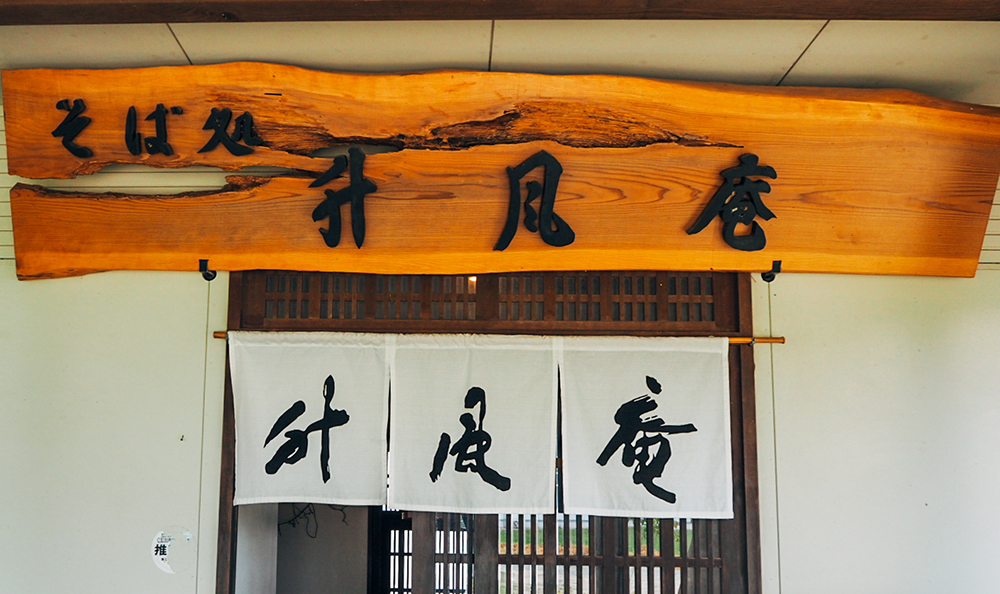 そば処
升風庵
升風庵
推